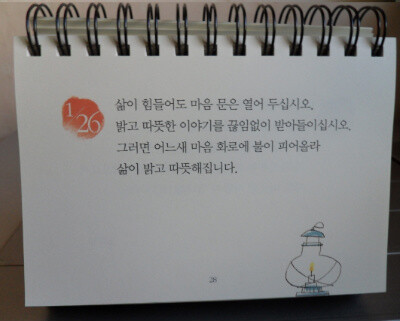 1/26
삶이 힘들어도 마음 문은 열어 두십시오.
밝고 따뜻한 이야기를 끊임없이 받아들이십시오.
그러면 어느새 마음 화로에 불이 피어올라
삶이 밝고 따뜻해집니다.
26